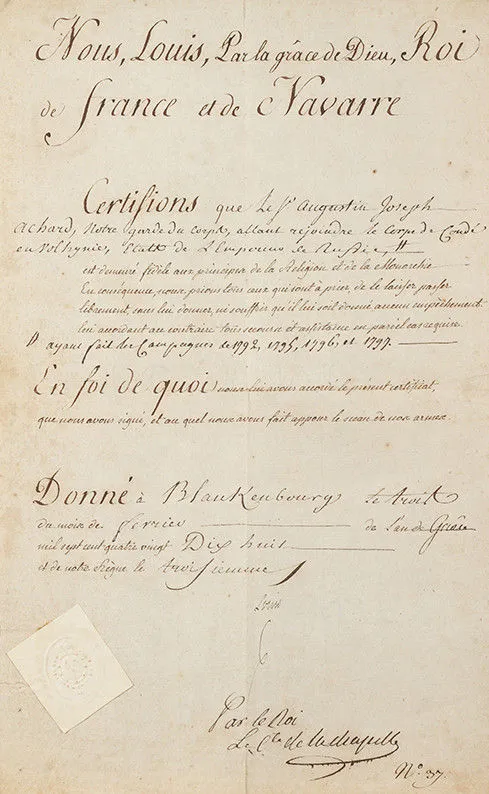 Nous, Louis, Par la grâce de Dieu, Roi
de france et de Navarre
Certifions que Le Sr. Augustin Joseph
Achard, Notre Garde du Corps, allant rejoindre le Corps de Condé
en Volhynie, Etats de L'Empereur de Russie, #
est demeuré fidèle aux principes de la Religion et de la Monarchie.
En conséquence, nous prions tous ceux qui sont à prier de le laisser passer
librement, sans lui donner, ni souffrir qu'il lui soit donné aucun empêchement
lui accordant au contraire tous secours et assistance en pareil cas requise.
# ayant fait les Campagnes de 1792, 1795, 1796, et 1797.
En foi de quoi nous lui avons accordé le présent certificat,
que nous avons signé, et au quel nous avons fait apposer le sceau de nos armes.
Donné à Blankenbourg le trois
du mois de fevrier de l'an de Grâce
mil sept cent quatre vingt Dix huit
et de notre Règne le troisiemme
Louis
Par le Roi
Le Cte de la Chapelle
No. 37.